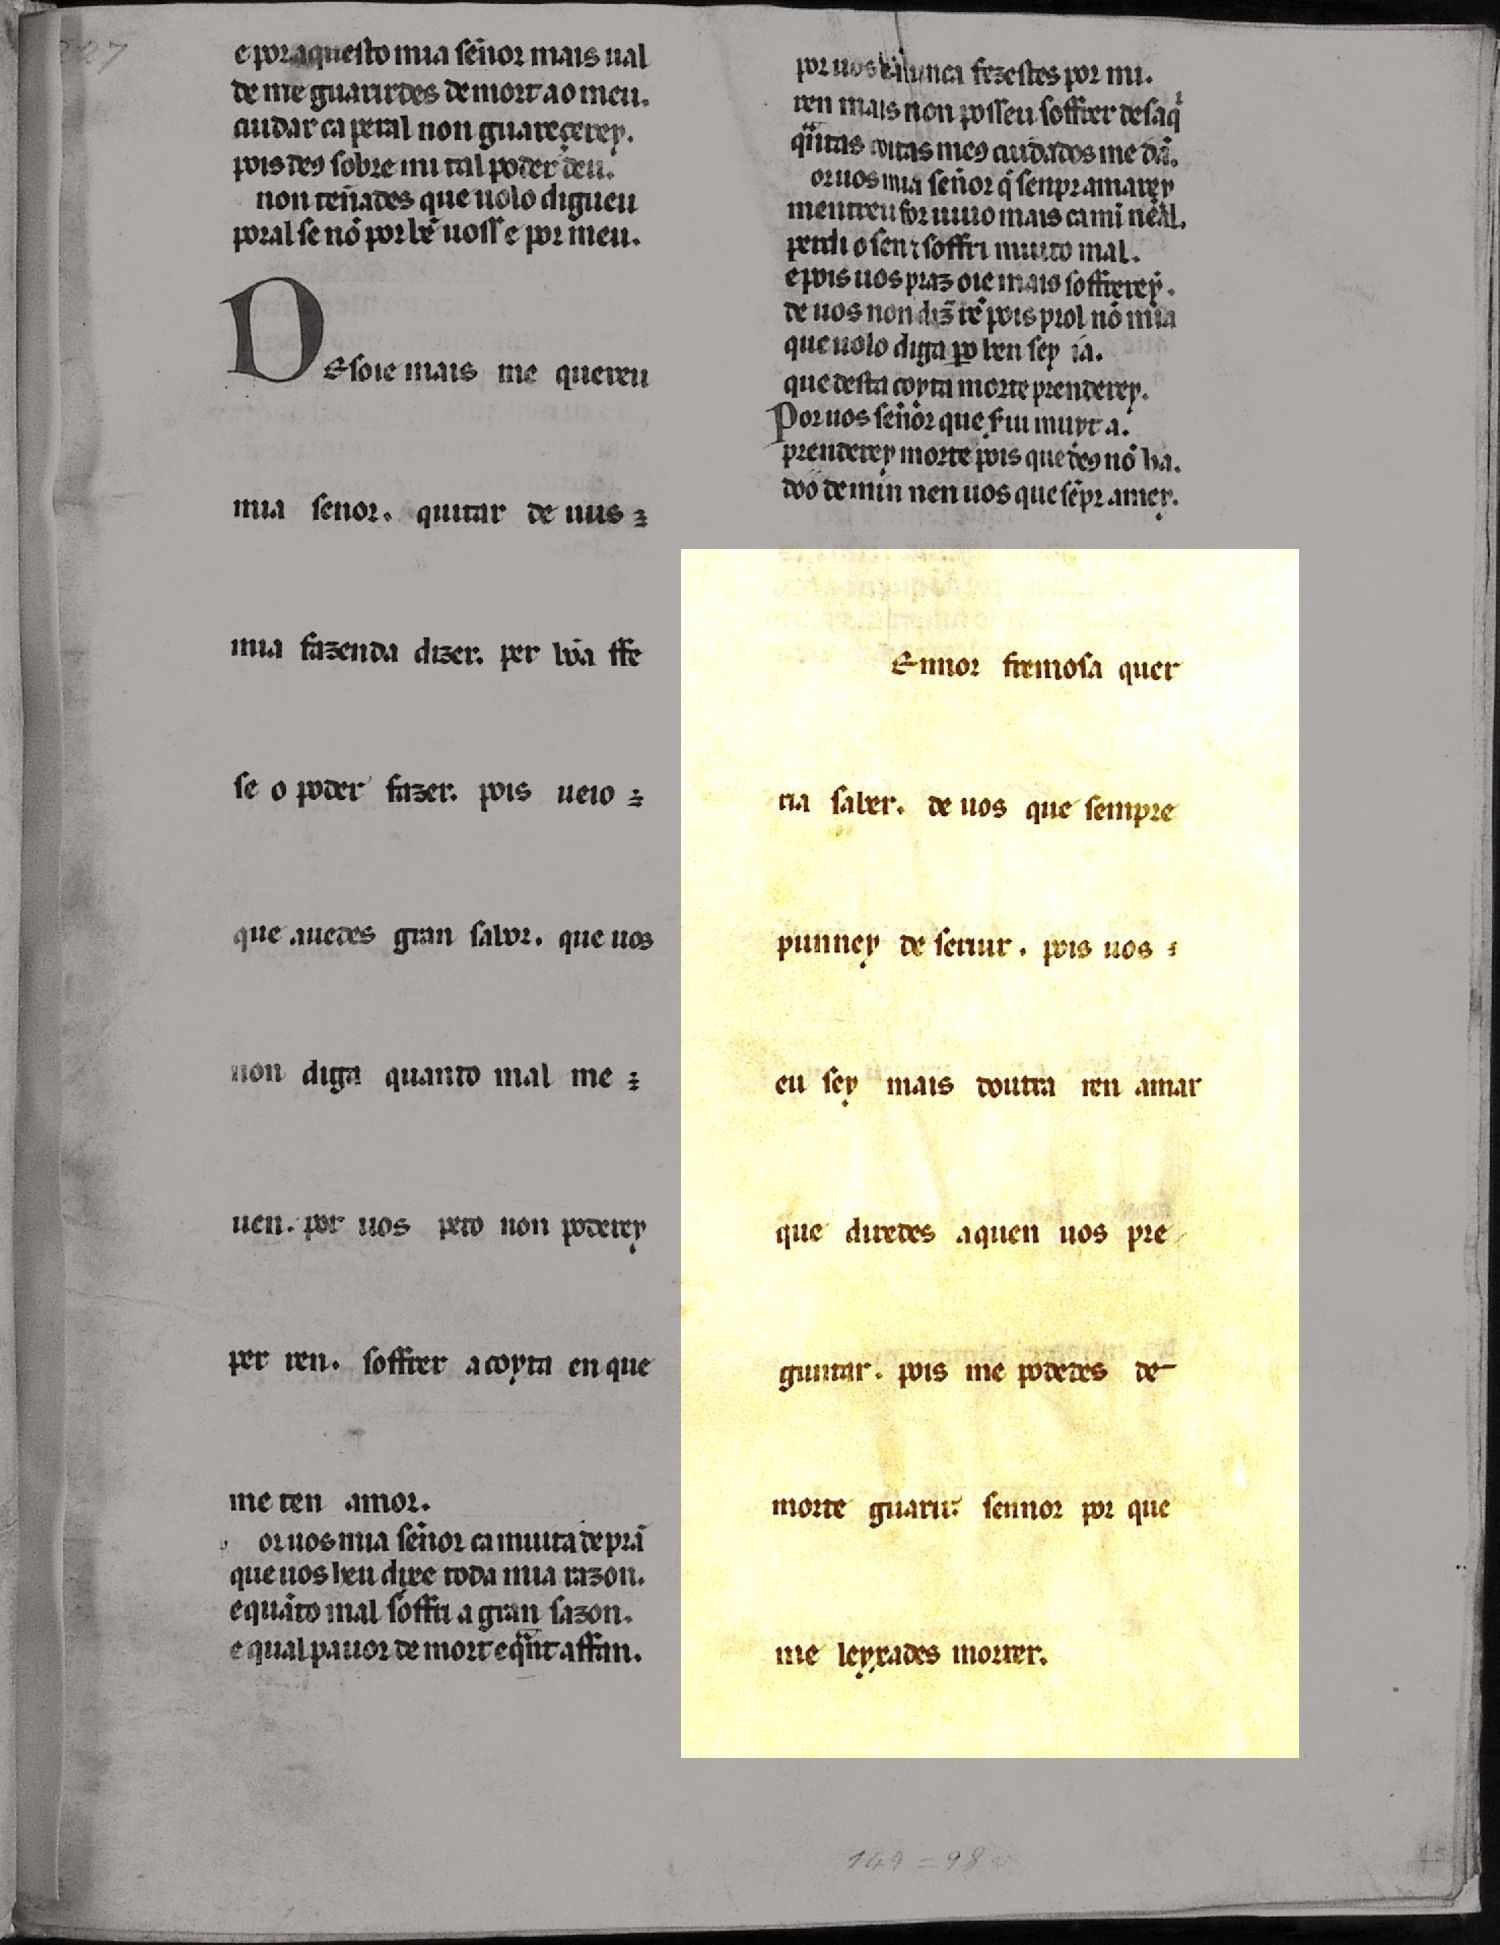 e por aquesto mia sẽnor mais ual
de me guarirdes de mort ao meu.
cuidar ca per al non guareçerey.
pois deꝯ sobre mi tal poder deu.
non teñades que uolo dig eu
por al se nõ por bẽ uoss e por meu.
Des oie mais me quer eu
mia senor. quitar de uus
mia fazenda dizer. per bõa ffe
se o poder fazer. pois ueio
que auedes gran sabor. que uos
non diga quanto mal me
uen. por uos pero non poderey
per ren. soffrer a coyta en que
me ten amor.
or uos mia sẽnor ca muita de prã
que uos beu dire toda mia razon.
e quãto mal soffri a gran sazon.
e qual pauor de mort e qãnt affan.
por uos nunca fezestes por mi.
ren mais non poss eu soffrer desaqⁱ
qãntas coitas meꝯ cuidados me dã.
or uos mia sẽnor q̃ senpr amarey
mentreu for uiuo mais ca mi nẽ al.
perdi o sen ⁊ soffri muito mal.
e pois uos praz oie mais soffrerey.
de uos non diz rẽ pois prol nõ mia
que uolo diga ꝑo ben sey ia.
que desta coyta morte prenderey.
Por uos sẽnor que fui muyt a.
prenderey morte pois que deꝯ nõ ha.
doo de min nen uos que sẽpr amey.
Ennor fremosa quer
ria saber. de uos que sempre
punney de seruir. pois uos
eu sey mais doutra ren amar
que diredes aquen uos pre
guntar. pois me podedes de
morte guarir. sennor por que
me leyxades morrer.
149 = 98